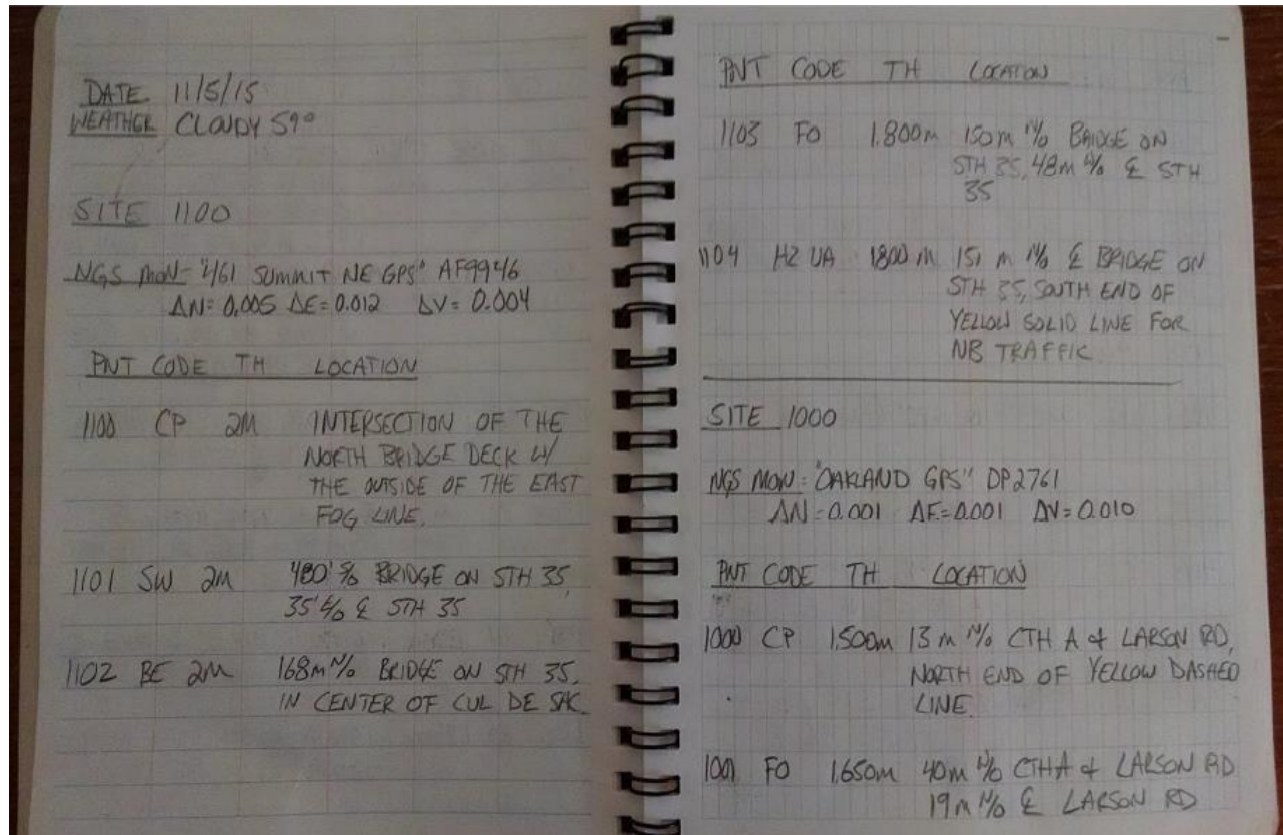 DATE 11/5/15
WEATHER CLOUDY 59°
SITE 1100
NGS MON- "461 SUMMIT NE GPS" AF9946
ΔN= 0.005 ΔE= 0.012 ΔV= 0.004
PNT CODE TH LOCATION
1100 CP 2M INTERSECTION OF THE
NORTH BRIDGE DECK W/
THE OUTSIDE OF THE EAST
FOG LINE.
1101 SW 2M 480' S/o BRIDGE ON STH 35,
35' E/o ℄ STH 35
1102 BE 2M 168m N/o BRIDGE ON STH 35,
IN CENTER OF CUL DE SAC.
PNT CODE TH LOCATION
1103 FO 1.800m 150m N/o BRIDGE ON
STH 35, 48m ℄ STH
35
1104 H2 UA 1800 m m N/o ℄ BRIDGE ON
STH 35, SOUTH END OF
YELLOW SOLID LINE FOR
NB TRAFFIC.
SITE 1000
NGS MON: "OAKLAND GPS" DP2761
ΔN=0.001 ΔE=0.001 ΔV=0.010
PNT CODE TH LOCATION
1000 CP 1.500m 13 m N/o CTH A & LARSON RD,
NORTH END OF YELLOW DASHED
LINE.
1001 FO 1.650m 40m CTH A & LARSON RD
19m N/o ℄ LARSON RD